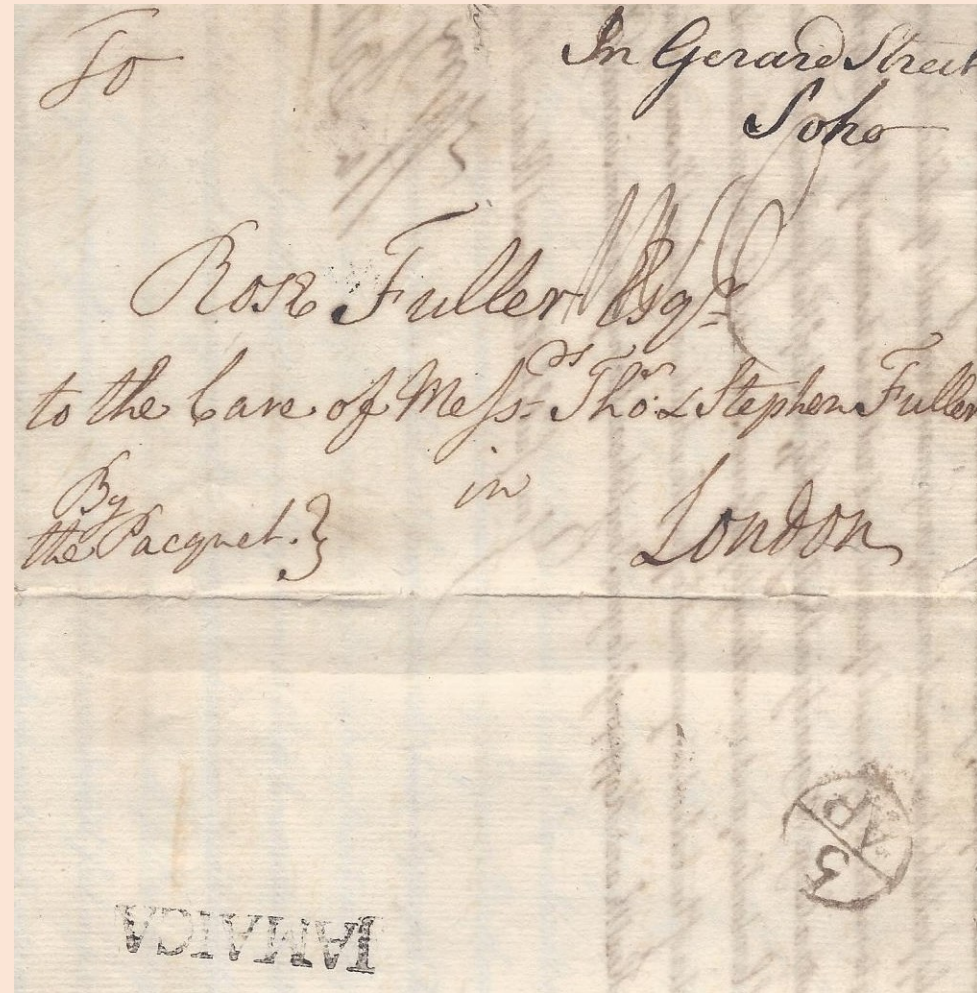 To
In Gerard Street
Soho
Rose Fuller Esqr
to the Care of Messrs Thos & Stephen Fuller
in
By
the Pacquet.}
London
AP
5
JAMAICA